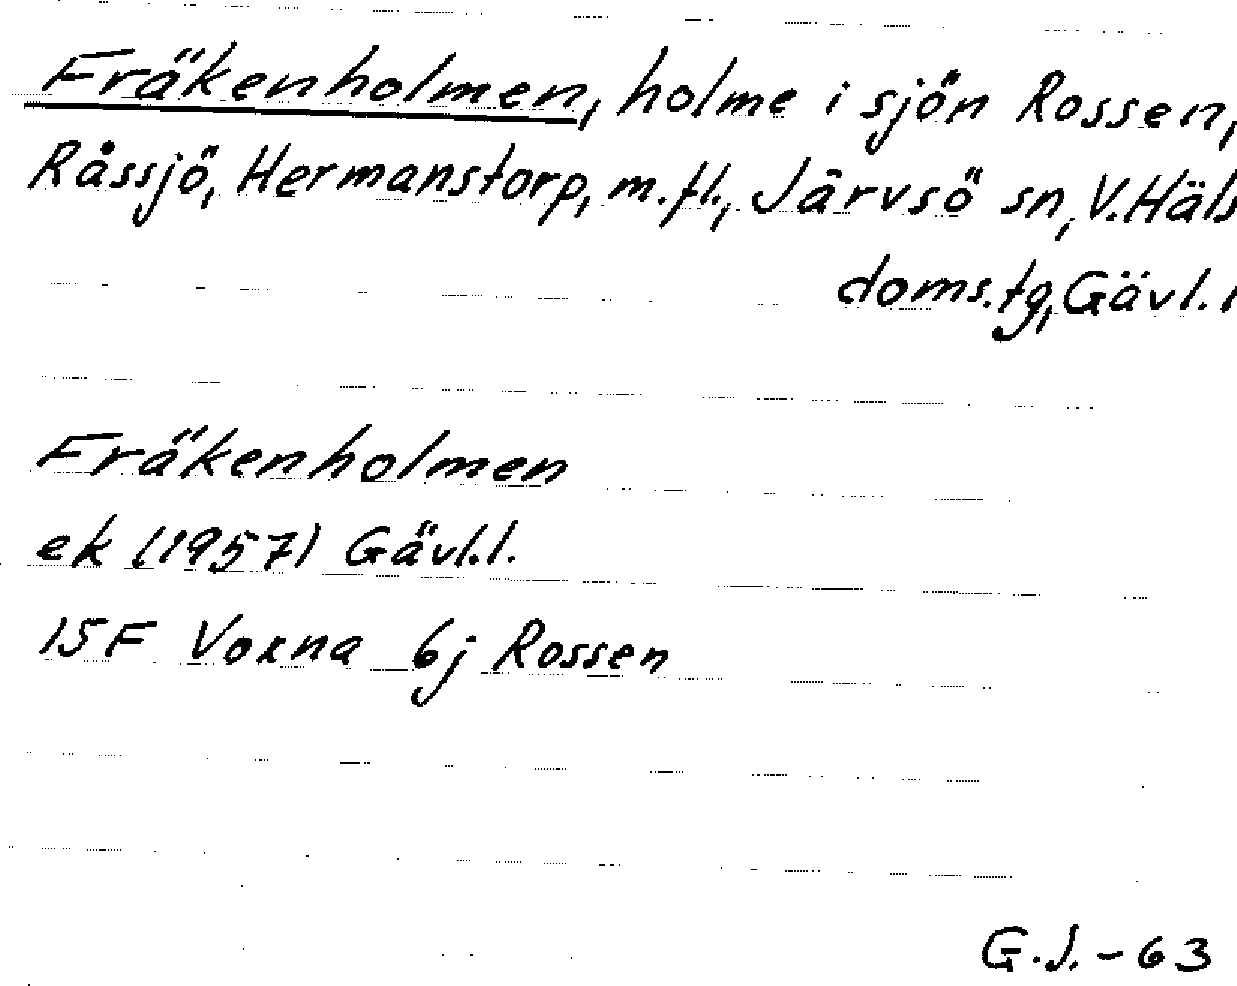 Fräkenholmen, holme i sjön Rossen,
Råssjö, Hermanstorp, m.fl., Järvsö sn, V. Häls
doms.tg, Gävl. l
Fräkenholmen
ek (1957) Gävl.l.
15F Voxna 6j Rossen
G.J.-63